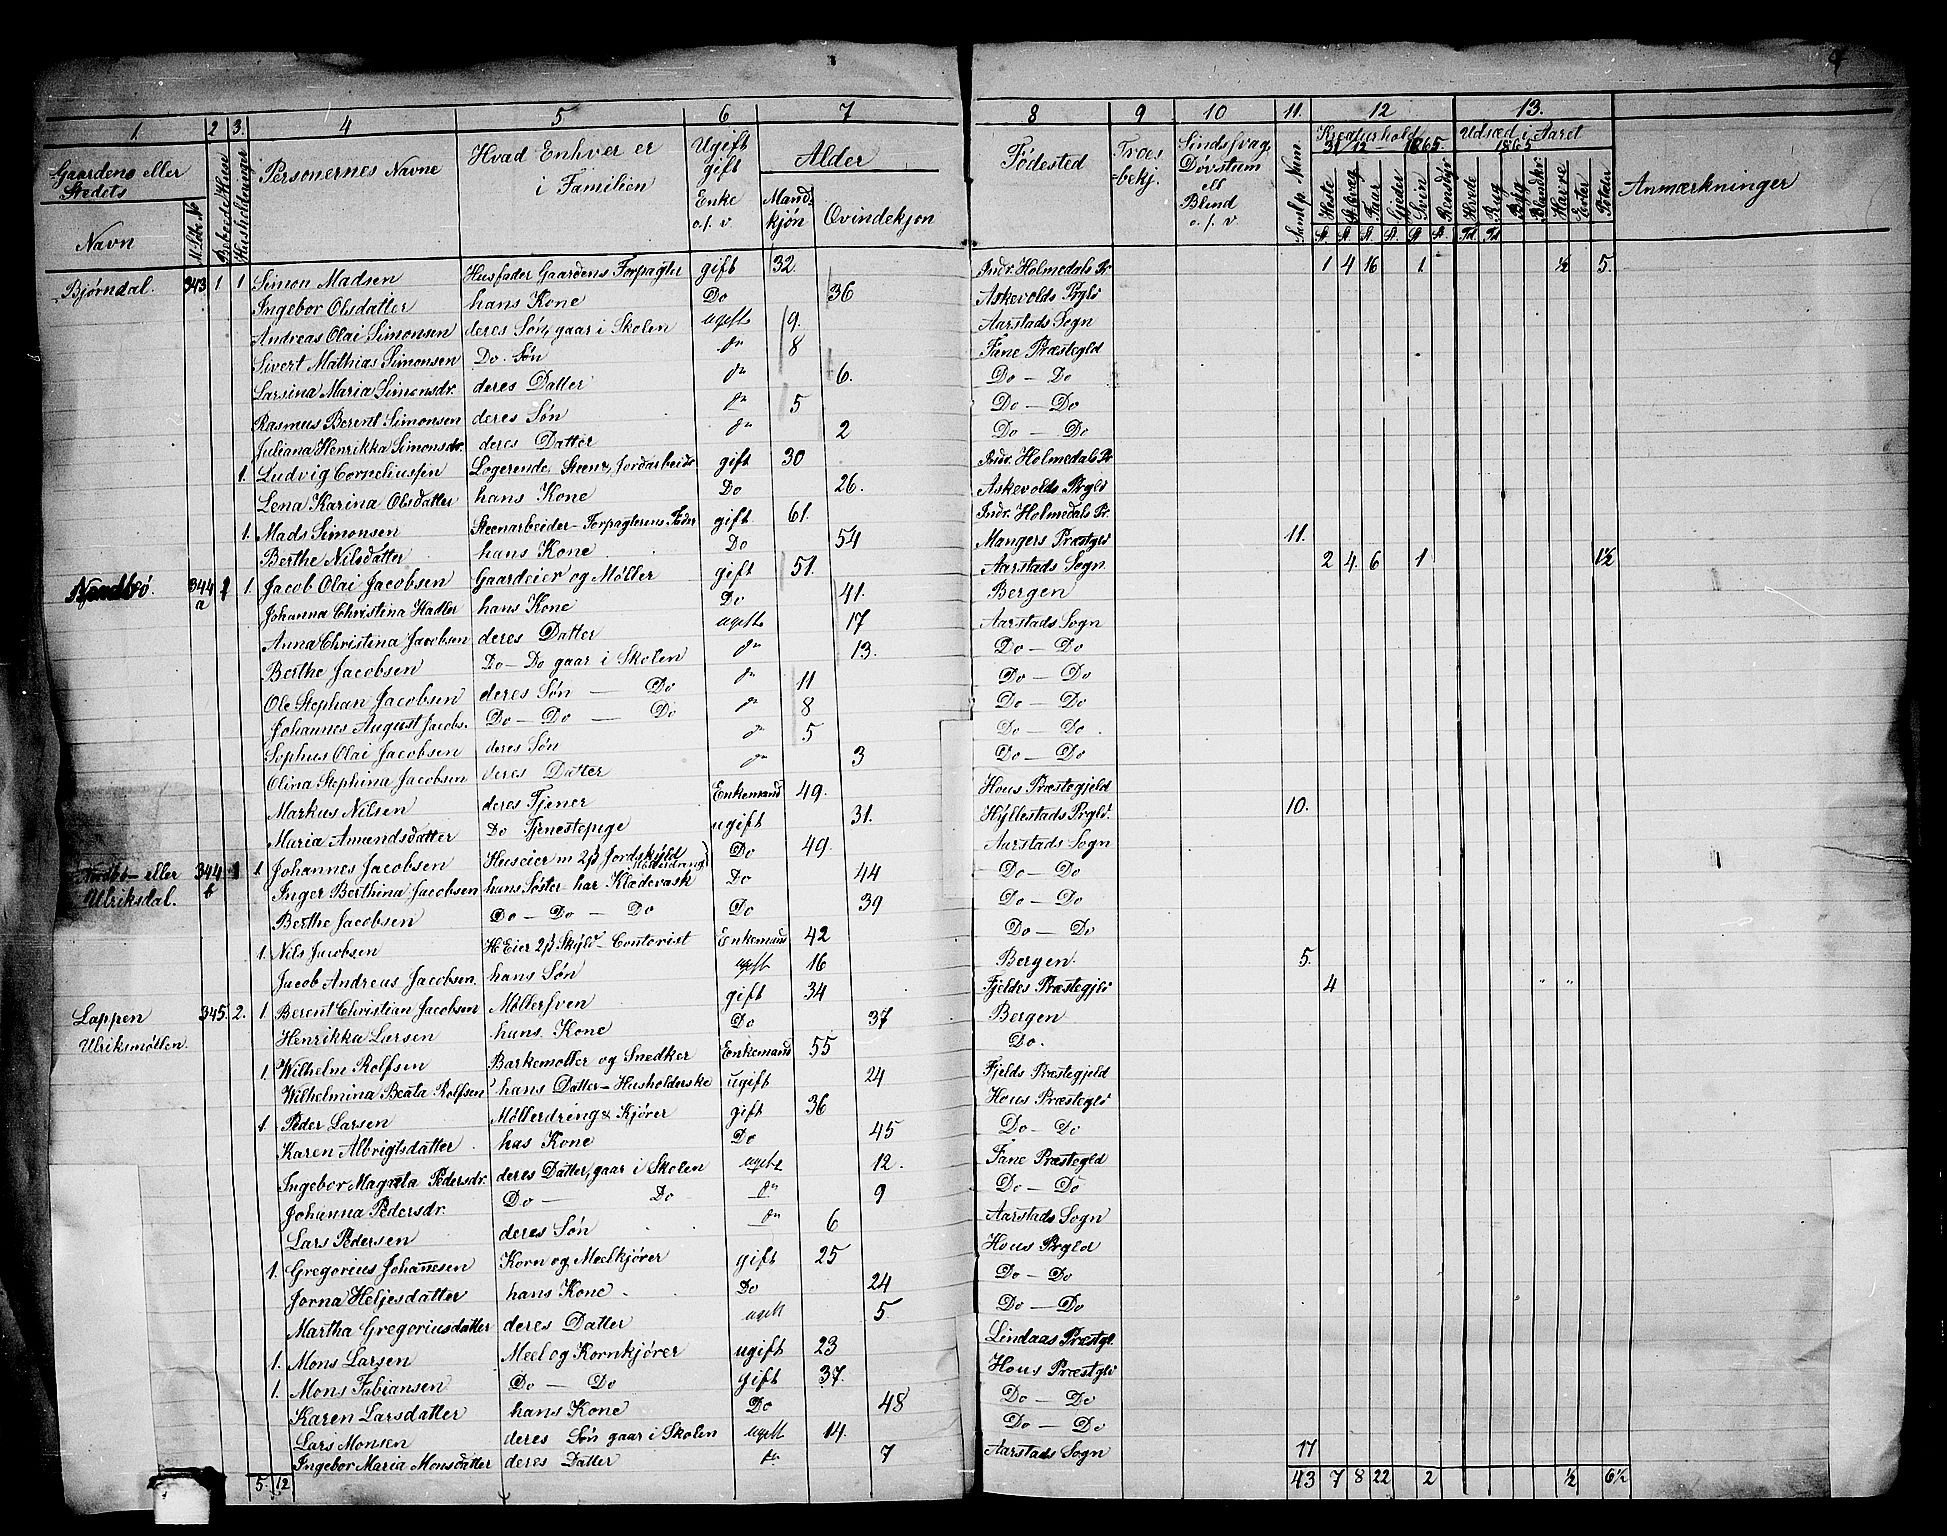 4
1. 2 3. 4 5 6 7 8 9 10 11. 12 13.
Gaardens eller Stedets Navn | M. No | Beboede Huse | Husholdninger | Personernes Navne | Hvad Enhver er i Familien | Ugift gift Enke o.s.v. | Alder Mandkjön Qvindekjön | Födested | Troesbekj. | Sindssvag, Dövstum ell Blind o.s.v. | Saml. p. Num. | Kreaturhold 31/12 1865. Heste Faar Gjeder Sviin Rensdyr | Udsæd i Aaret 1865 Hvede Rug Byg Blandkr Havre Erter Poteter | Anmærkninger
Bjørndal. 343 1 1 Simon Madsen Husfader Gaardens Forpagter gift 32. Indr. Holmedals Pr 1 4 16 1 ½ 5.
Ingebor Olsdatter hans Kone Do 36 Askevolds Prgld
Andreas Olai Simonsen deres Søn, gaar i Skolen ugift 9. Aarstads Sogn
Sivert Mathias Simonsen Do. Søn 8 Fane Præstegld
Larsina Maria Simonsdr. deres Datter 6. Do — Do
Rasmus Berent Simonsen deres Søn 5 Do — Do
Juliana Henrikka Simonsdr. deres Datter 2 Do — Do
1. Ludvig Corneliussen Logerende, Steen, Jordarbeidr gift 30 Indr. Holmedals Pr
Lena Karina Olsdatter hans Kone Do 26. Askevolds Prgld
1. Mads Simonsen Steenarbeider - Forpagterens Fader gift 61. Indr. Holmedals Pr.
Berthe Nilsdatter hans Kone Do 54 Mangers Præstgld 11.
Nordbø. 344 a 1 1 Jacob Olai Jacobsen Gaardeier og Møller gift 51. Aarstads Sogn 2 4 6 1 1½
Johanna Christina Hadler hans Kone Do 41. Bergen
Anna Christina Jacobsen deres Datter ugift 17 Aarstads Sogn
Berthe Jacobsen Do — Do gaar i Skolen 13. Do — Do
Ole Stephan Jacobsen deres Søn — Do 11 Do — Do
Johannes August Jacobs. Do — Do — Do 8 Do — Do
Sophus Olai Jacobsen deres Søn 5 Do — Do
Olina Stephina Jacobsen deres Datter 3 Do — Do
Markus Nilsen deres Tjener Enkemand 49. Hous Præstegjeld
Maria Amundsdatter Do Tjenestepige ugift 31. Hyllestads Prgld. 10.
Nordbø - eller Ulriksdal. 344 b 1 1 Johannes Jacobsen Huseier m 2ß Jordskyld Do 49. Aarstads Sogn
Inger Berthina Jacobsen hans Søster - har Klædevask Do 44 Do — Do
Berthe Jacobsen Do — Do — Do Do 39 Do — Do
1. Nils Jacobsen H Eier 2ß Skyld - Contorist Enkemand 42 Do — Do
Jacob Andreas Jacobsen. hans Søn ugift 16 Bergen. 5.
Lappen Ulriksmøllen. 345. 2. 1 Berent Christian Jacobsen Møllersven gift 34 Fjeldes Præstegjld 4 " "
Henrikka Larsen hans. Kone Do 37 Bergen
1. Wilhelm Rolfsen Barkemøller og Snedker Enkemand 55 Do.
Wilhelmina Beata Rolfsen hans Datter - Husholderske ugift 24 Fjelds Præstegjeld
1. Peder Larsen Møllerdreng & Kjører gift 36 Hous Præstegld
Karen Albrigtsdatter. has Kone Do 45 Do — Do
Ingebor Magnla Pedersdr. deres Datter, gaar i Skolen ugift 12. Fane Præstegld
Johanna Pedersdr. Do — Do 9 Do — Do
Lars Pedersen deres Søn 6 Aarstads Sogn
1. Gregorius Johannesen Korn og Meelkjører gift 25 Hous Prgld
Jorna Heljesdatter hans Kone. Do 24 Do — Do
Martha Gregoriusdatter deres Datter ugift 5. Do — Do
1. Mons Larsen Meel og Kornkjører ugift 23 Lindaas Præstgl.
1. Mons Fabiansen Do — Do gift 37. Hous Præstgld
Karen Larsdatter hans Kone Do 48 Do — Do
Lars Monsen deres Søn gaar i Skolen ugift 14. Do — Do
Ingebor Maria Monsdatter deres Datter 7 Aarstads Sogn 17
5. 12 43 7 8 22 2 ½ 6½